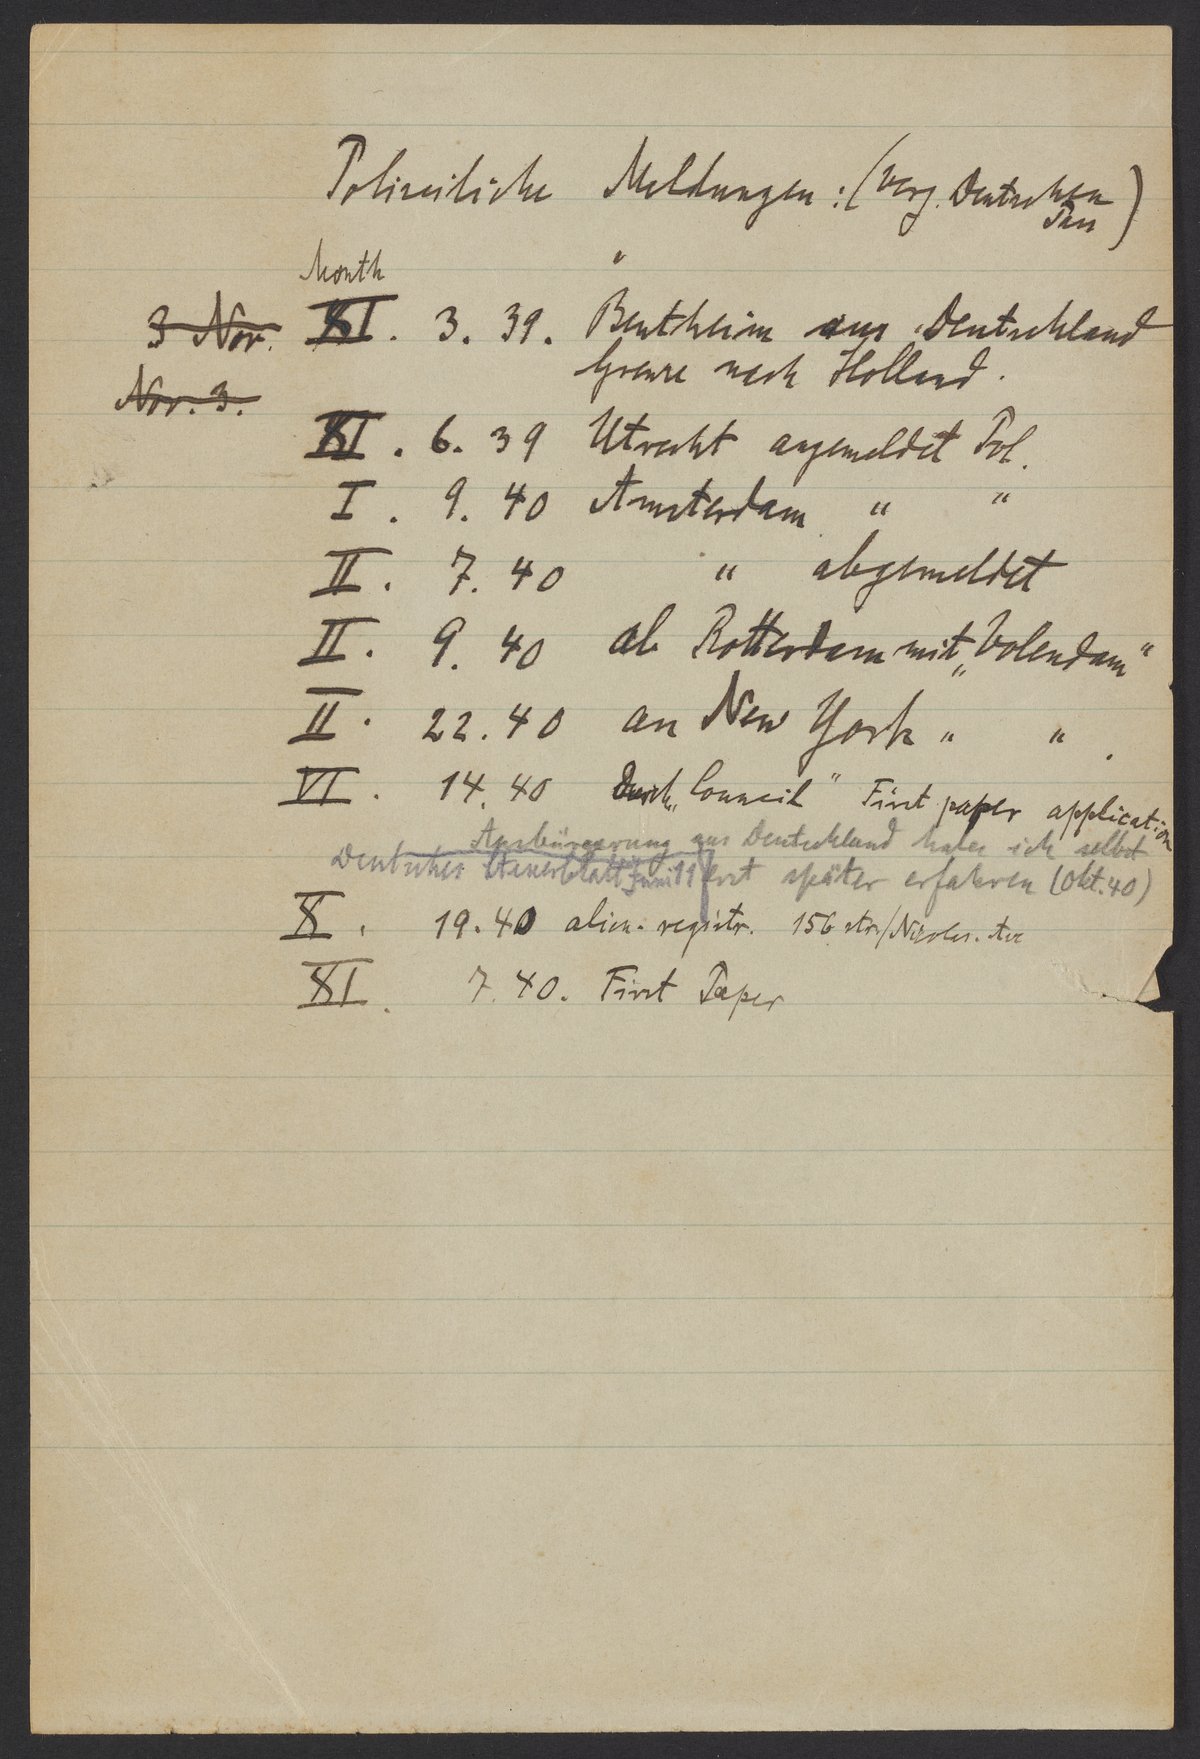 Polizeiliche Meldungen: (verg. Deutschen Pass)
Month
3 Nov. XI. 3. 39. Bentheim aus Deutschland
Grenze nach Holland.
Nov. 3.
XI. 6. 39 Utrecht angemeldet Pol.
I. 9. 40 Amsterdam " "
II. 7. 40 " abgemeldet
II. 9. 40 ab Rotterdam mit „Volendam"
II. 22. 40 an New York " "
VI. 14. 40 Durch „Council" First paper application
Ausbürgerung aus Deutschland habe ich selbst
Deutsches Steuerblatt Juni 11 erst später erfahren (Okt. 40)
X. 19. 40 alien. registr. 156 str./Nicolas. Ave
XI. 7. 40. First Paper